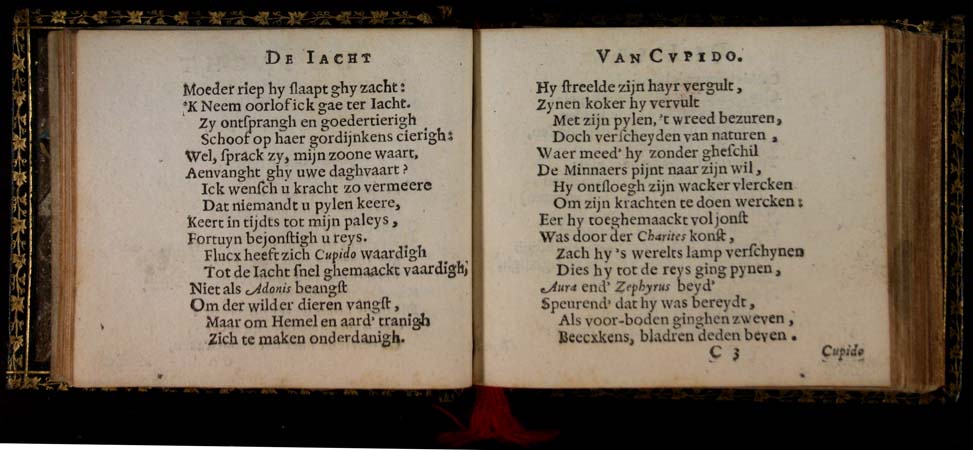 DE IACHT
Moeder riep hy ſlaapt ghy zacht:
'K Neem oorlof ick gae ter Iacht.
Zy ontſprangh en goedertierigh
Schoof op haer gordijnkens cierigh:
Wel, ſprack zy, mijn zoone waart,
Aenvanght ghy uwe daghvaart?
Ick wenſch u kracht zo vermeere
Dat niemandt u pylen keere,
Keert in tijdts tot mijn paleys,
Fortuyn bejonſtigh u reys.
Flucx heeft zich Cupido waardigh
Tot de Iacht ſnel ghemaackt vaardigh,
Niet als Adonis beangſt
Om der wilder dieren vangſt,
Maar om Hemel en aard' tranigh
Zich te maken onderdanigh.
VAN CVPIDO.
Hy ſtreelde zijn hayr vergult,
Zynen koker hy vervult
Met zijn pylen, 't wreed bezuren,
Doch verſcheyden van naturen,
Waer meed' hy zonder gheſchil
De Minnaers pijnt naar zijn wil,
Hy ontſloegh zijn wacker vlercken
Om zijn krachten te doen wercken:
Eer hy toeghemaackt vol jonſt
Was door der Charites konſt,
Zach hy 's werelts lamp verſchynen
Dies hy tot de reys ging pynen,
Aura end' Zephyrus beyd'
Speurend' dat hy was bereydt,
Als voor-boden ginghen zweven,
Beecxkens, bladren deden beven.
C 3 Cupido